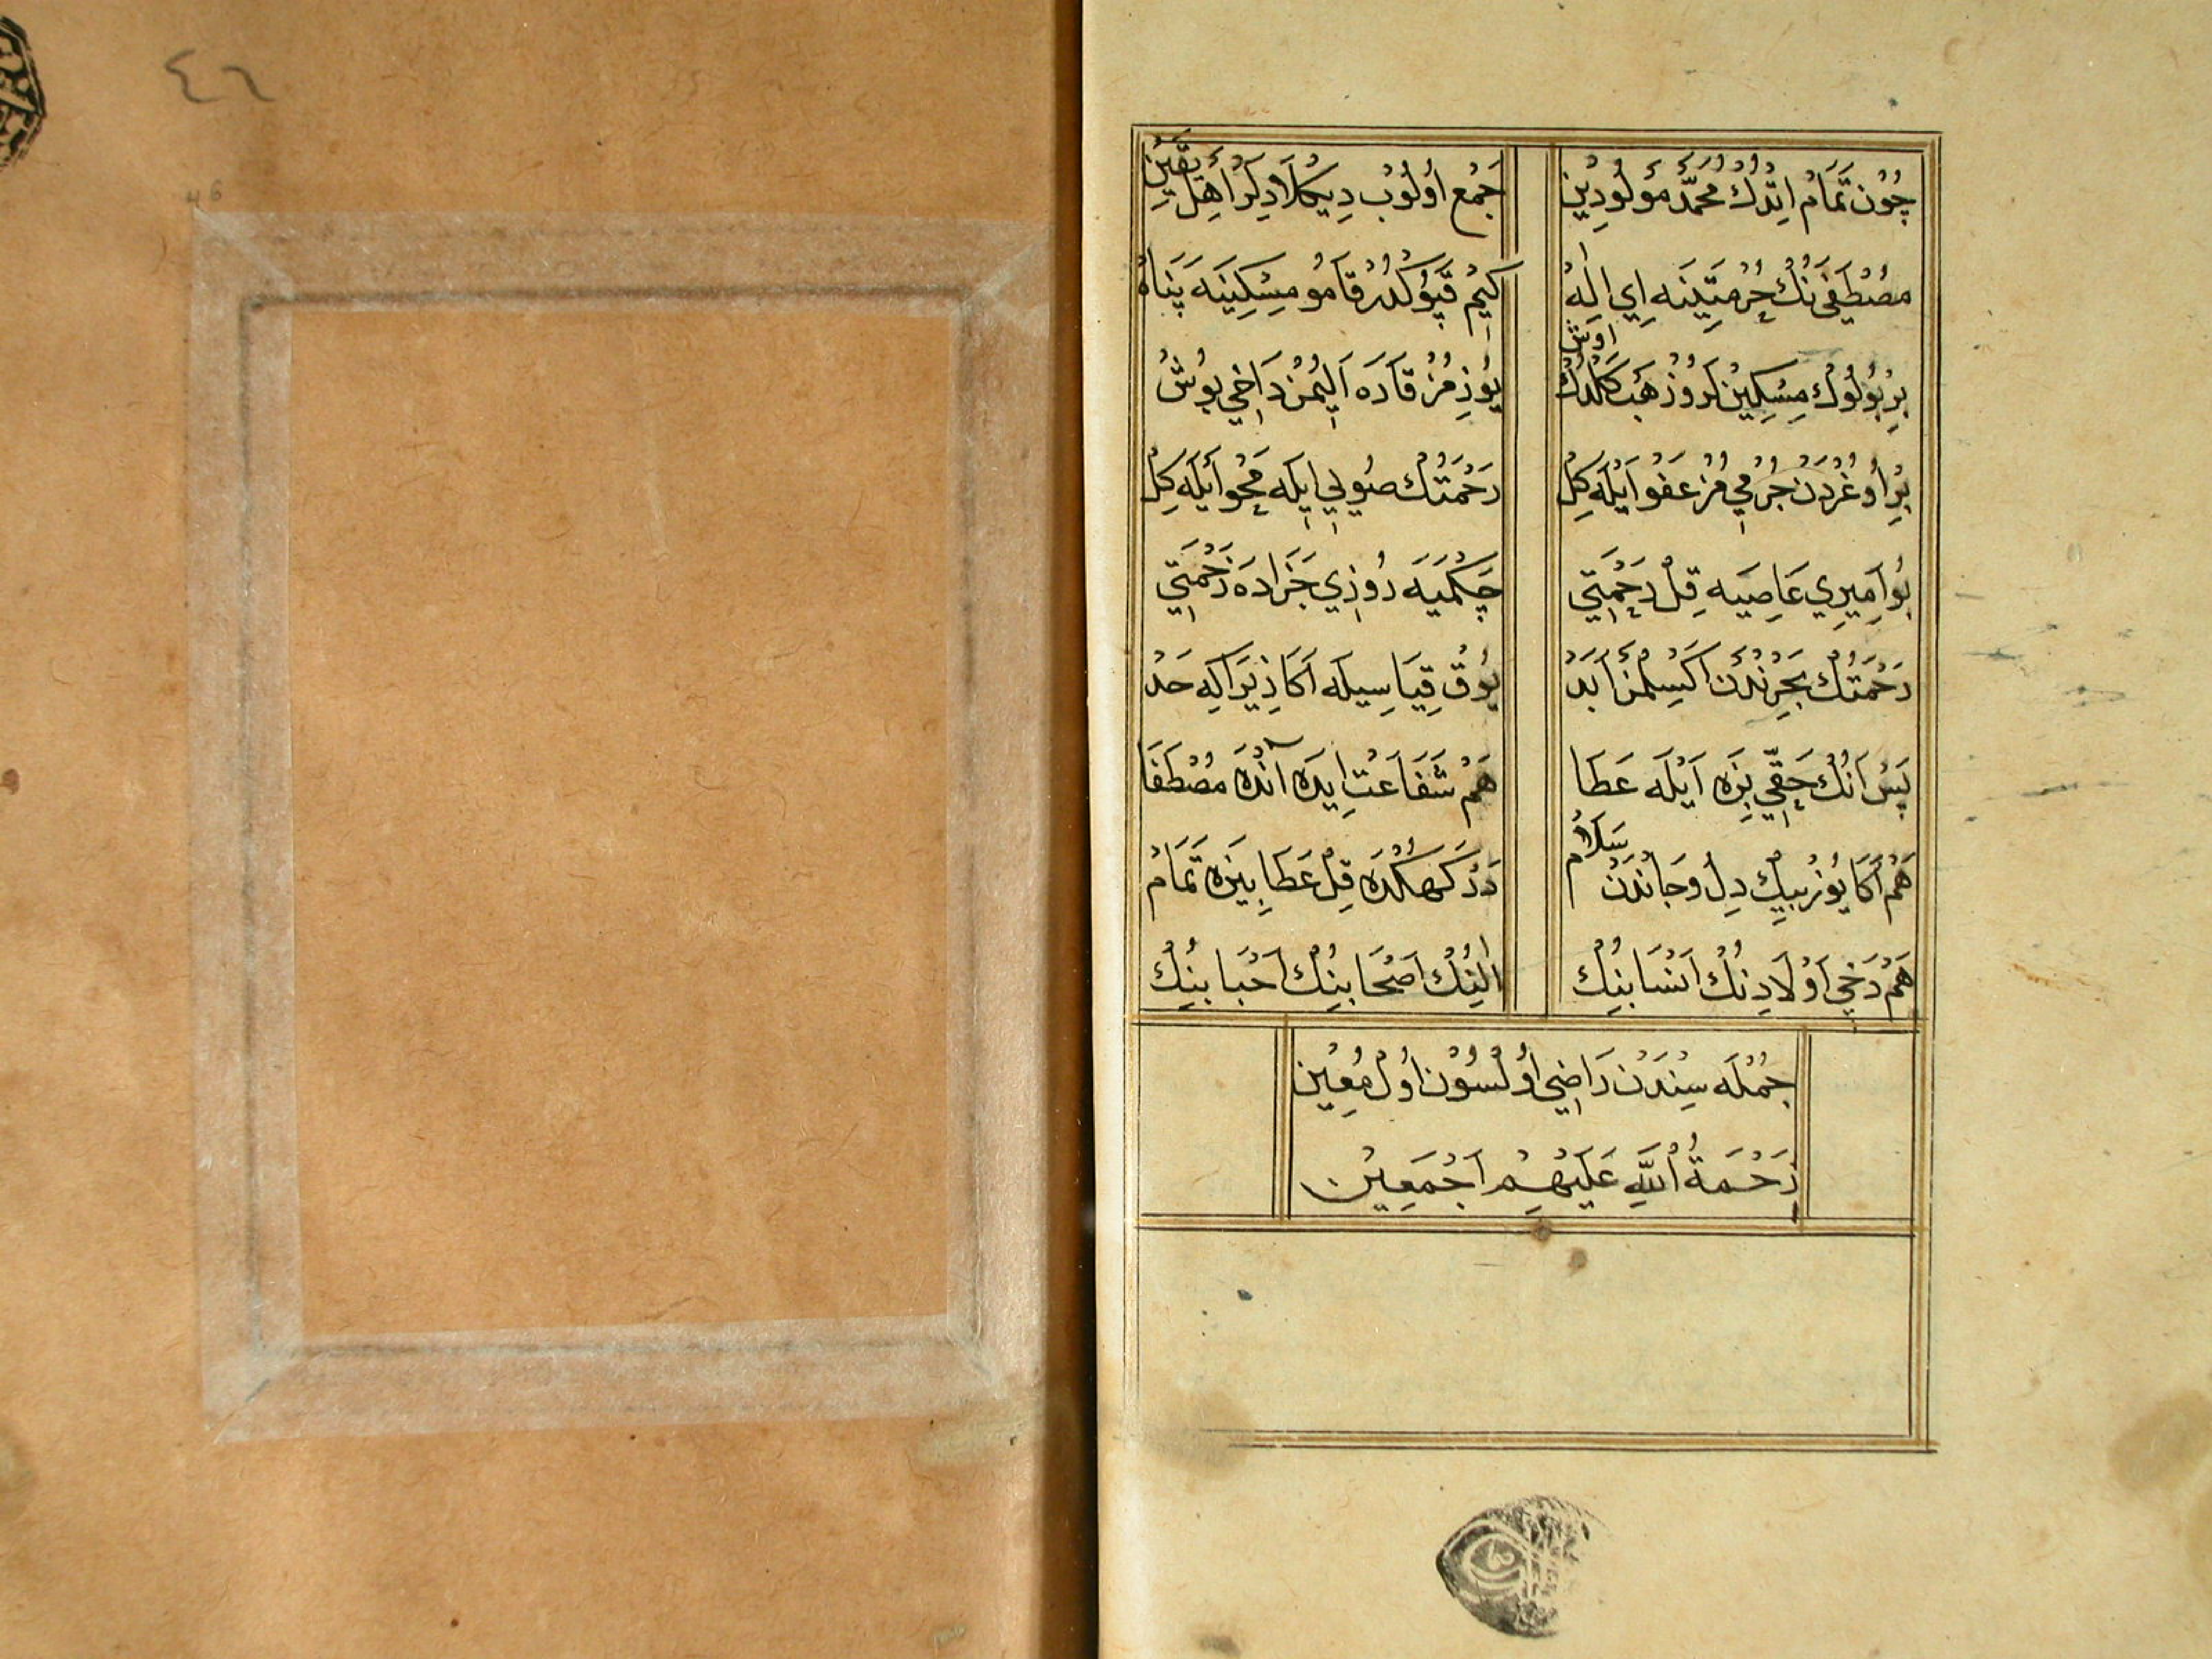 ٤٦
46
چُونْ تَمَامْ اِتْدُكْ مُحَمَّدْ مَوْلُودِينْ جَمْعْ اُولُوبْ دِيكْلَادِلَرْ اَهْلِ يَقِينْ
مُصْطَفٰى نُكْ حُرْمَتِينَه اِي اِلٰهْ كِيمْ قَپُوكْدُرْ قَامُو مِسْكِينَه پَنَاهْ
بِرْ بُولُوكْ مِسْكِينْلَرُوزْ هَبْ كَلْدُكْ اوُشْ يُوزِمُزْ قَارَه اَلِيمُزْ دَاخِي بُوشْ
بِزْ اُوغْرَدَنْ جُرْمِي مُزْ عَفْو اَيْلَه كِلْ رَحْمَتُكْ صُويِي اِيلَه مَحْو اَيْلَه كِلْ
بُو اَمِيرِي عَاصِيَه قِلْ رَحْمَتِي چَكْمَيَه رُوزِي جَزَادَه زَحْمَتِي
رَحْمَتُكْ بَحْرِنْدَنْ اَكْسِلْمَزْ اَبَدْ يُوقْ قِيَاسِيلَه اَكَا زِيرَا كِه حَدْ
پَسْ اَنُكْ حَقِّي بِزَه اَيْلَه عَطَا هَمْ شَفَاعَتْ اِيدَه اَنْدَه مُصْطَفَا
هَمْ اَكَا يُوزْ بِيكْ دِلُ وجَانْدَنْ سَلَامْ دَرْكَهكْدَه قِلْ عَطَا بِيزَه تَمَامْ
هَمْ دَخِي اَوْلَادِنُكْ اَنْسَابِنُكْ اٰلِنُكْ اَصْحَابِنُكْ اَحْبَابِنُكْ
جُمْلَه سِنْدَنْ رَاضِي اُولْسُونْ اُولْ مُعِينْ
رَحْمَةُ اللّٰهِ عَلَيْهِمْ اَجْمَعِينْ